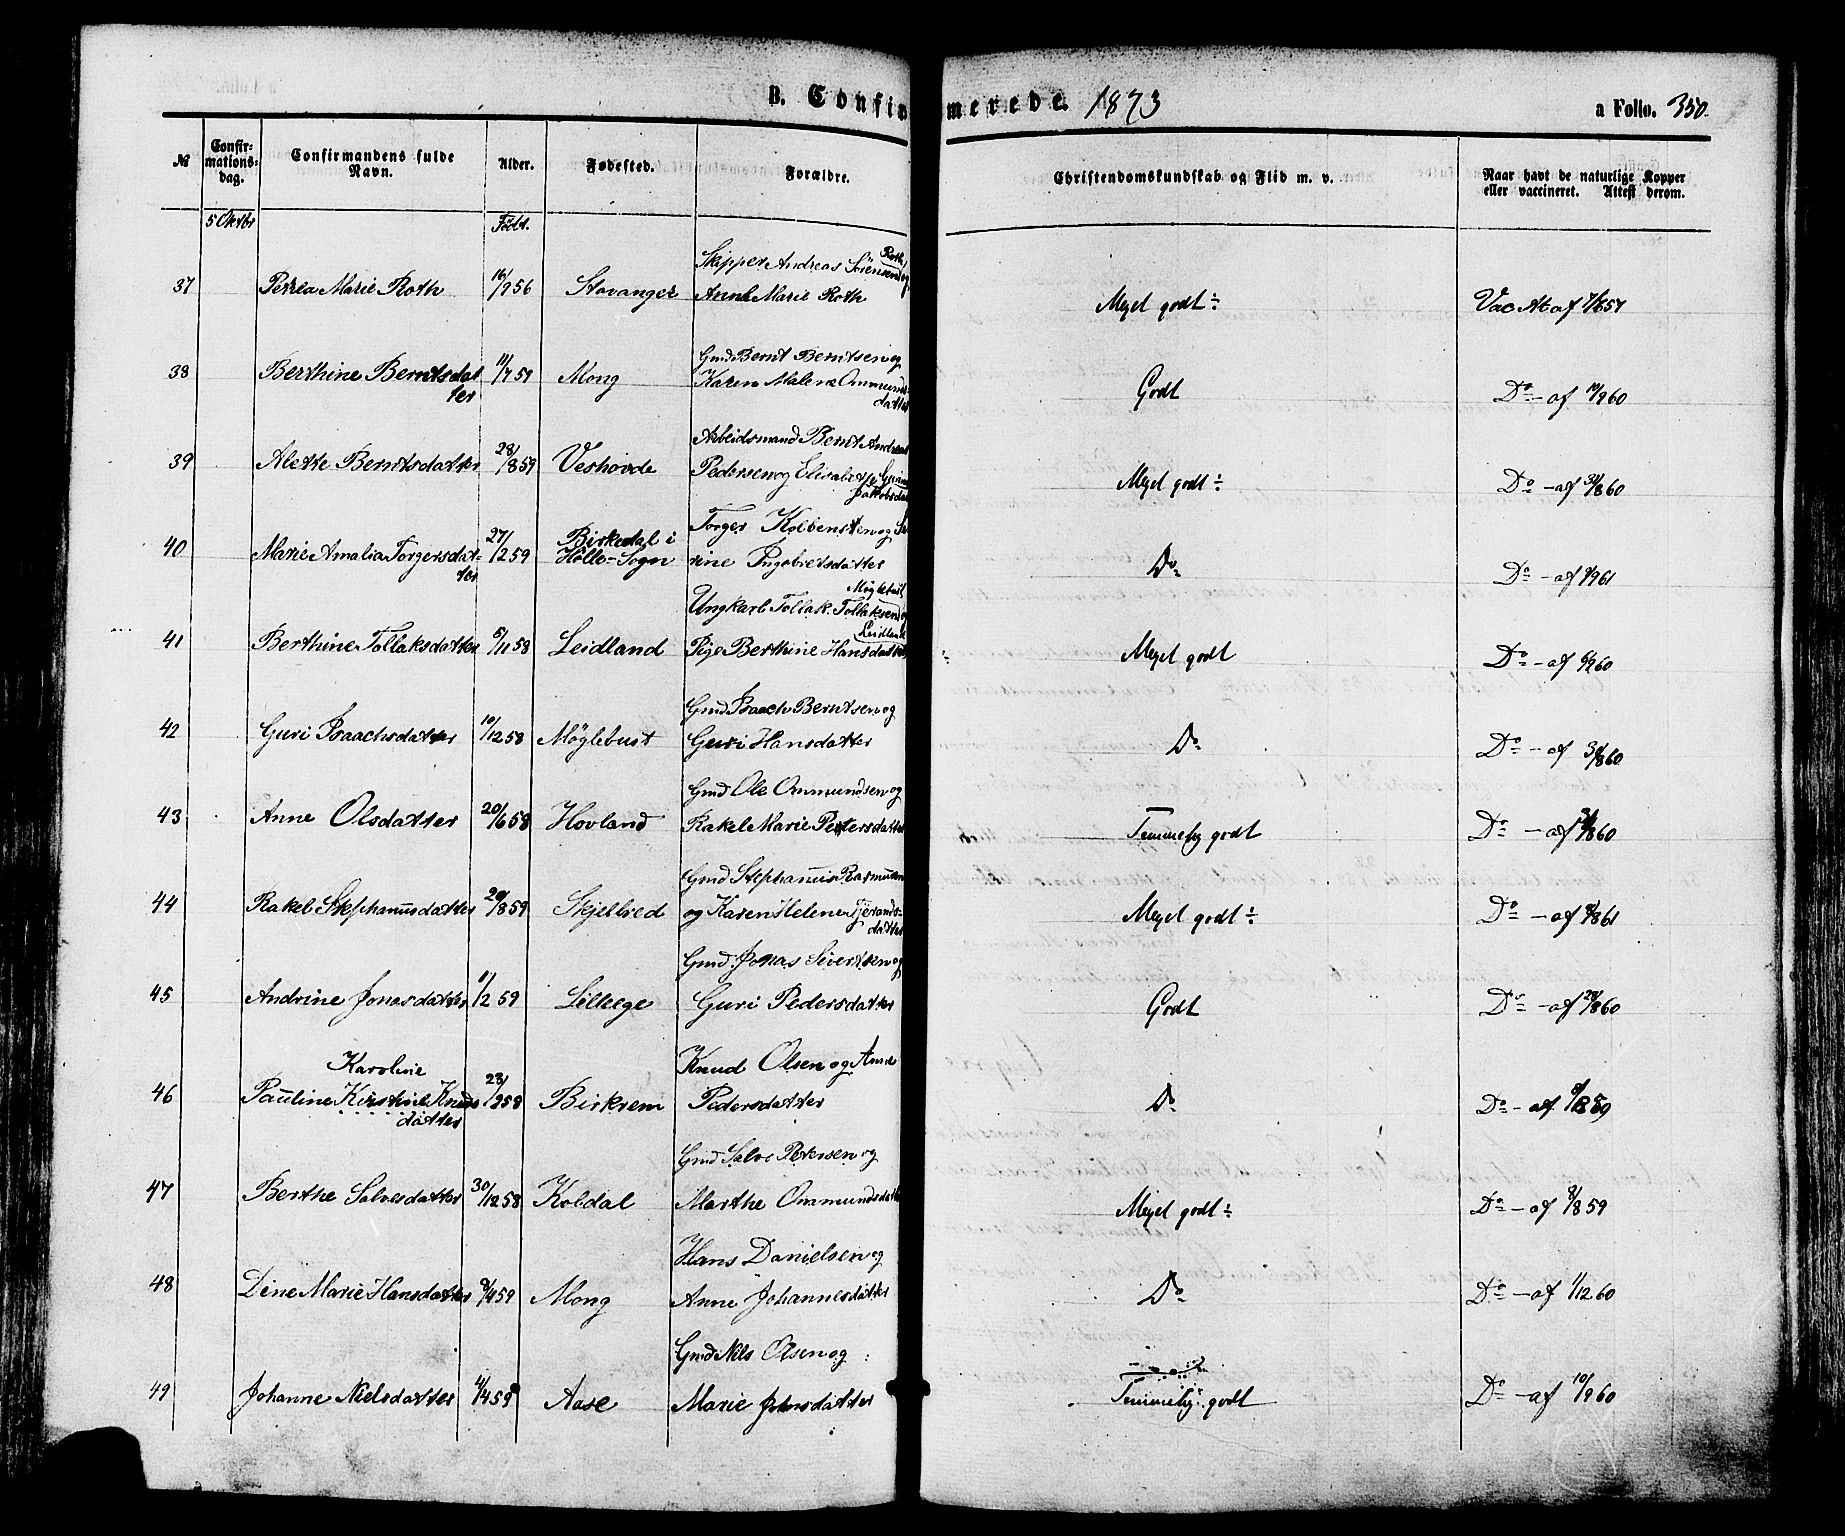 B. Confirmerede. 1873
a Folio. 350.
№ Confirmationsdag. Confirmandens fulde Navn. Alder. Fødested. Forældre. Christendomskundskab og Flid m. v. Naar havt de naturlige Kopper eller vaccineret. Attest derom.
5 Oktbr Födt.
Skipper Andreas Sörensen Roth, og
37 Petrea Marie Roth 16/9 56 Stavanger Anne Marie Roth Meget godt ÷ Vac At af 7/8 57
Gmd Bernt Berntsen og
38 Berthine Berntsdatter 11/7 59 Mong Karen Malene Ommundsdatter Godt Do - af 14/9 60
Arbeidsmand Bernt Andreas
39 Alette Berntsdatter 28/8 59 Veshovde Pedersen og Elisabeth Jakobsdat Meget godt ÷ Do - af 31/8 60
Torger Kolbensten og Se
40 Marie Amalia Torgersdatter 27/12 59 Birkedal i Hölle-Sogn rine Ingebretsdatter Do Do - af 9/9 61
Ungkarl Tollak Tollaksen Möglebust, og
41 Berthine Tollaksdatter 5/11 58 Leidland Pige Berthine Hansdatter Leidland Meget godt Do - af 6/9 60
Gmd Isaach Berntsen og
42 Guri Isaachsdatter 10/12 58 Möglebust Guri Hansdatter Do Do - af 31/8 60
Gmd Ole Ommundsen og
43 Anne Olsdatter 20/6 58 Hovland Rakel Marie Petersdatter Temmelig godt Do - af 31/8 60
Gmd Stephanus Rasmussen
44 Rakel Stephanusdatter 29/8 59 Skjelbred og Karen Helene Tjerandsdatter Meget godt ÷ Do - af 8/8 61
Gmd. Jonas Sivertsen og
45 Andrine Jonasdatter 1/2 59 Lillege Guri Pedersdatter Godt Do - af 28/8 60
Karoline Knud Olsen og Anne
46 Pauline Kirstine Knudsdatter 23/9 58 Birkrem Pedersdatter Do Do - af
Gmd Salve Petersen og
47 Berthe Salvesdatter 30/12 58 Koldal Marthe Ommundsdatter Meget godt ÷ Do - af 8/8 59
Hans Danielsen og
48 Dine Marie Hansdatter 9/4 59 Mong Anne Johannesdatter Do Do - af 1/12 60
Gmd Nils Olsen og
49 Johanne Nielsdatter 4/4 59 Aase Marie Johnsdatter Temmelig godt Do - af 10/9 60